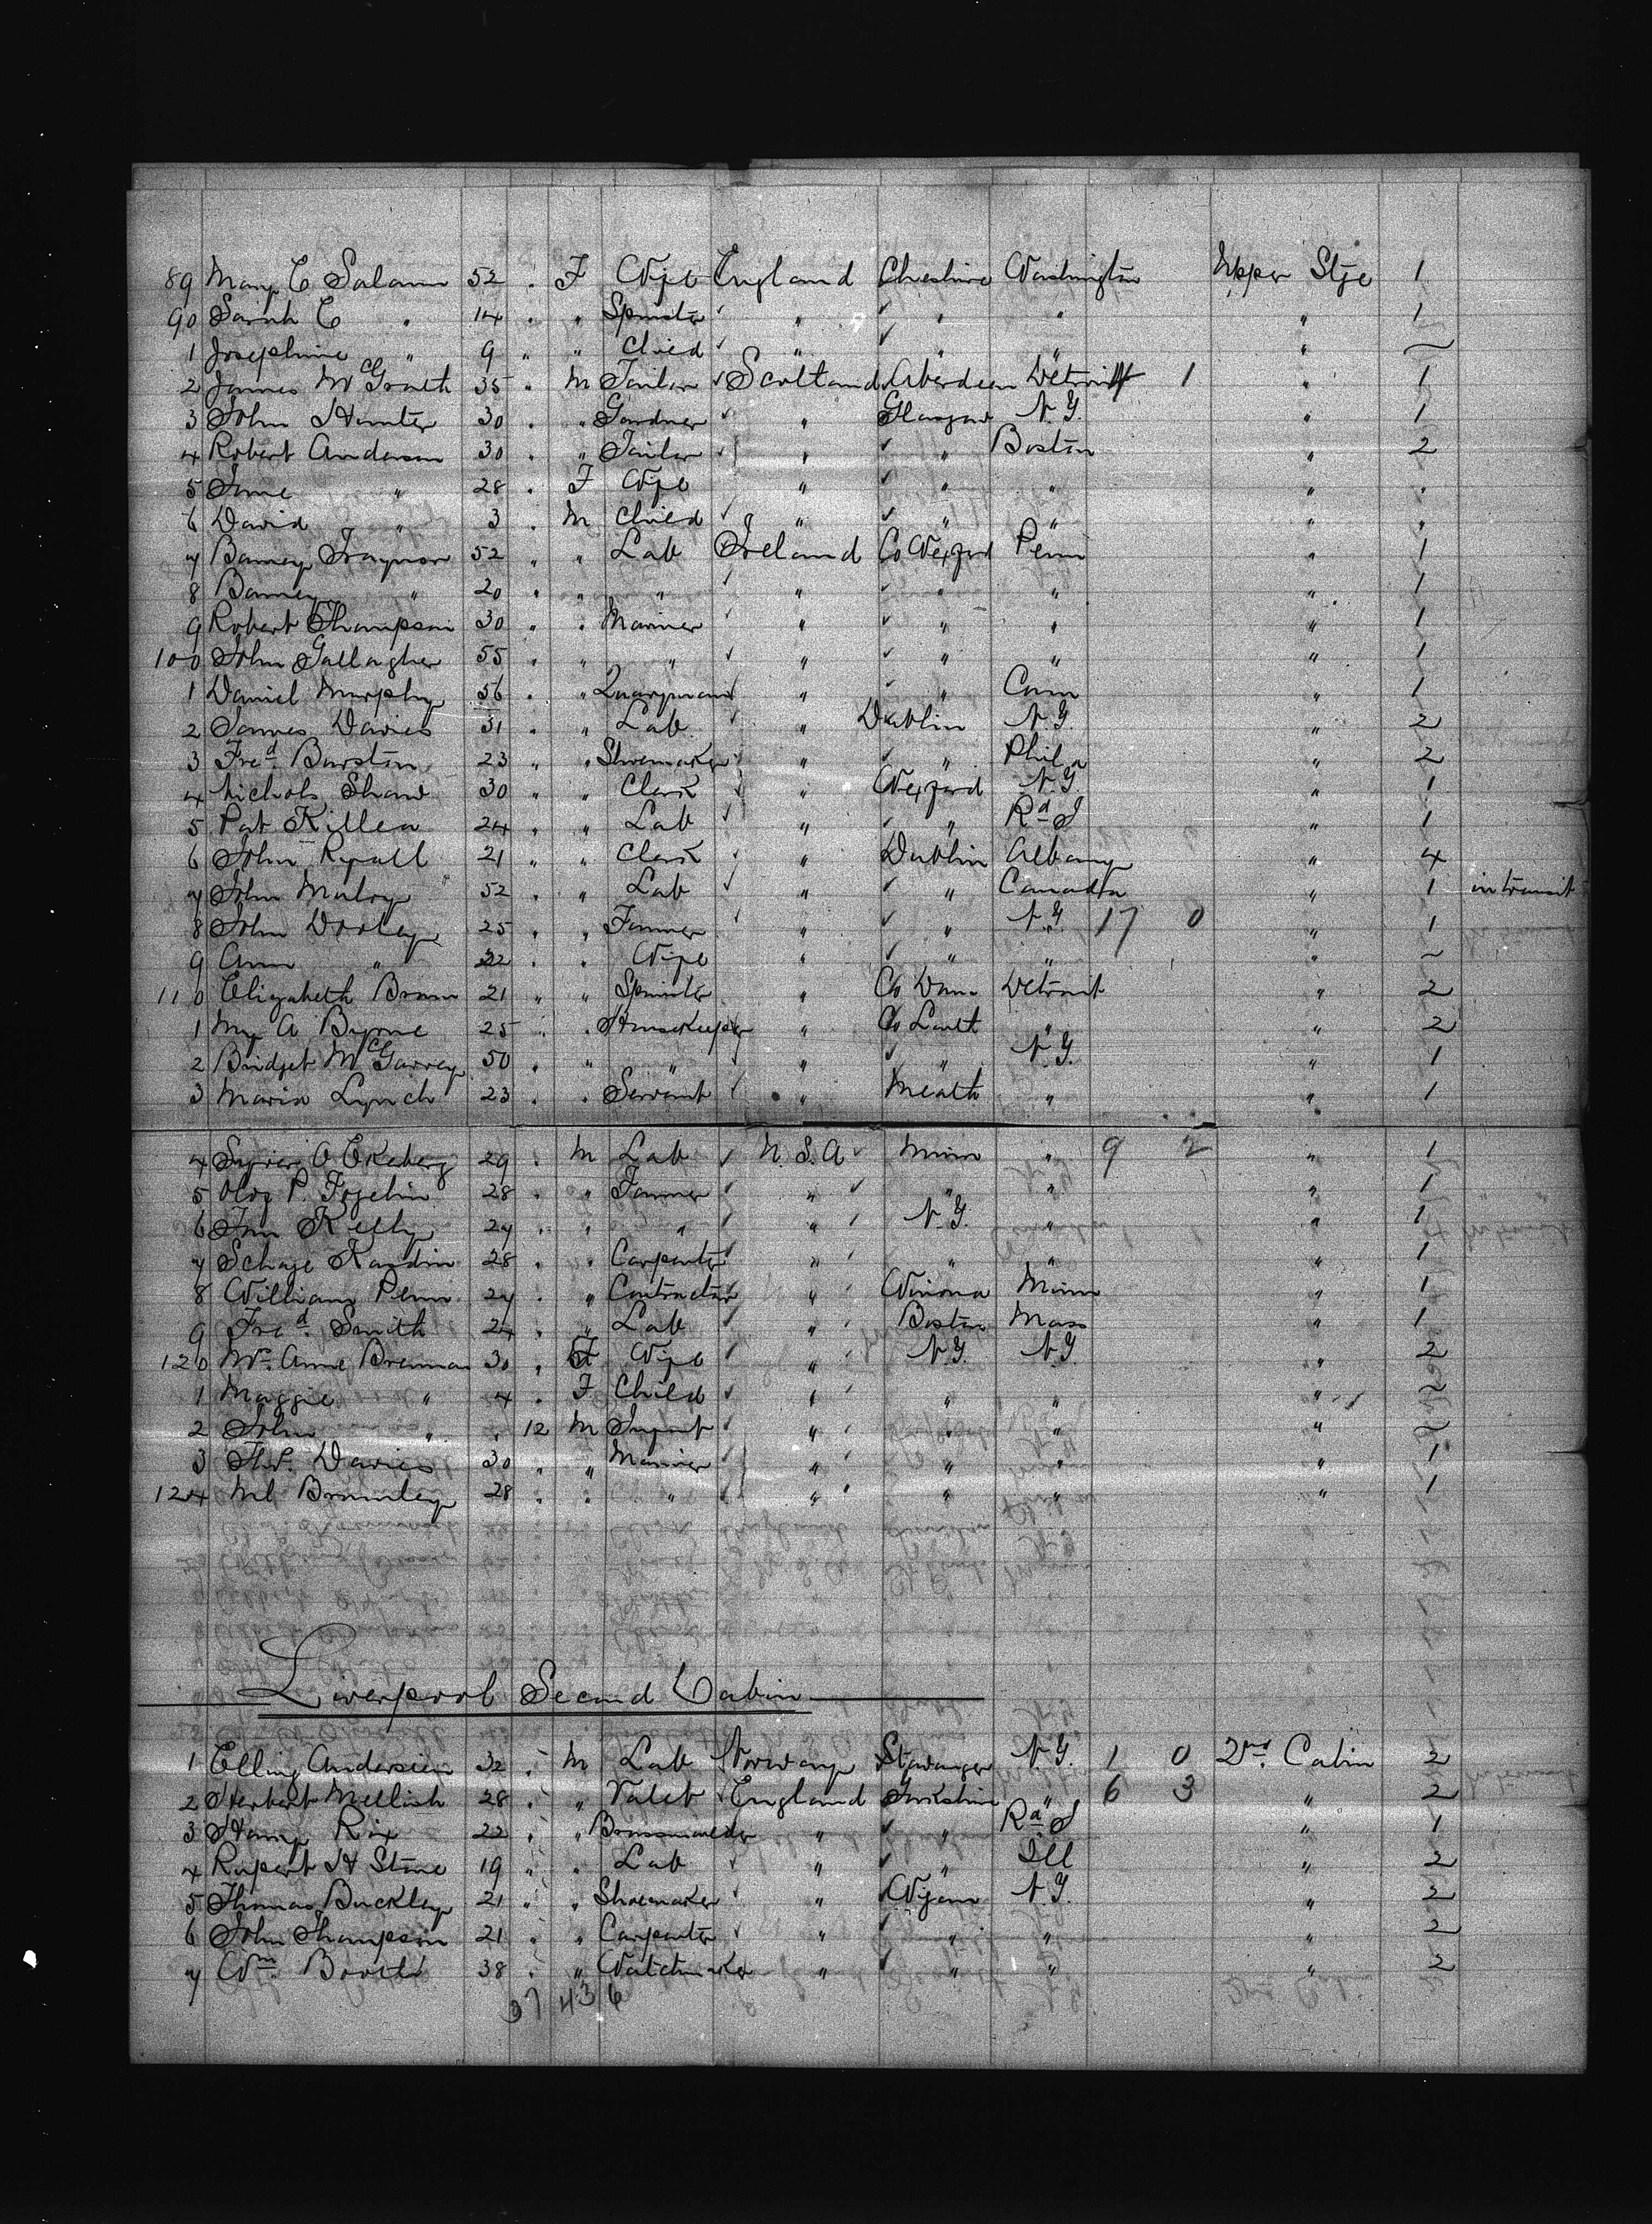 89 Mary E Salam 52 " F Wife England Cheshire Washington Upper Stge 1
90 Sarah E " 14 " " Spinster " " " " 1
1 Josephine " 9 " " Child " " " " ~
2 James McGrath 35 " M Tailor Scotland Aberdeen Detroit 1 " 1
3 John Hunter 30 " " Gardner " Glasgow N.Y. " 1
4 Robert Anderson 30 " " Tailor " " Boston " 2
5 Jane " 28 " F Wife " " " " "
6 David " 3 " M Child " " " " "
7 Barney Traynor 52 " " Lab Ireland Co Wexford Penn " 1
8 Barney " 20 " " " " " " " 1
9 Robert Thompson 30 " " Mariner " " " " 1
100 John Gallagher 55 " " " " " " " 1
1 Daniel Murphy 56 " " Quarryman " " Conn " 1
2 James Davies 31 " " Lab " Dublin N.Y. " 2
3 Fred Barston 23 " " Shoemaker " " Phila " 2
4 Nichols Shaw 30 " " Clerk " Wexford N.Y. " 1
5 Pat Killen 24 " " Lab " " Rd I " 1
6 John Ryall 21 " " Clerk " Dublin Albany " 4
7 John Mulroy 52 " " Lab " " Canada " 1 in transit
8 John Dooley 25 " " Farmer " " N.Y. 17 0 " 1
9 Ann " 22 " " Wife " " " " ~
110 Elizabeth Brown 21 " " Spinster " Co Down Detroit " 2
1 My A Byrne 25 " " Housekeeper " Co Louth " " 2
2 Bridget McGarvey 50 " " " " " N.Y. " 1
3 Maria Lynch 23 " " Servant " Meath " " 1
4 O Ekeberg 29 " M Lab U.S.A Minn " 9 2 " 1
5 P. 28 " " Farmer " " " " 1
6 Jno Kelly 27 " " " " N.Y. " " 1
7 28 " " Carpenter " " " " 1
8 William Penn 27 " " Contractor " Winona Minn " 1
9 Fred Smith 24 " " Lab " Boston Mass " 1
120 Mrs Anne Brennan 30 " F Wife " N.Y. N.Y. " 2
1 Maggie " 4 " F Child " " " " ~
2 John " " 12 M Infant " " " " ~
3 Davies 30 " " Mariner " " " " 1
124 Ml Bromley 28 " " " " " " " 1
Liverpool Second Cabin
1 Elling Andersen 32 " M Lab Norway Stavanger N.Y. 1 0 2nd Cabin 2
2 Herbert Mellish 28 " " Valet England Yorkshire " 6 3 " 2
3 Harry Rix 22 " " Brassmoulder " " Rd I " 1
4 Rupert H Stone 19 " " Lab " " Ill " 2
5 Thomas Buckley 21 " " Shoemaker " Wigan N.Y. " 2
6 John Thompson 21 " " Carpenter " " " " 2
7 Wm Booth 38 " " Watchmaker " " " " 2
37 43 6